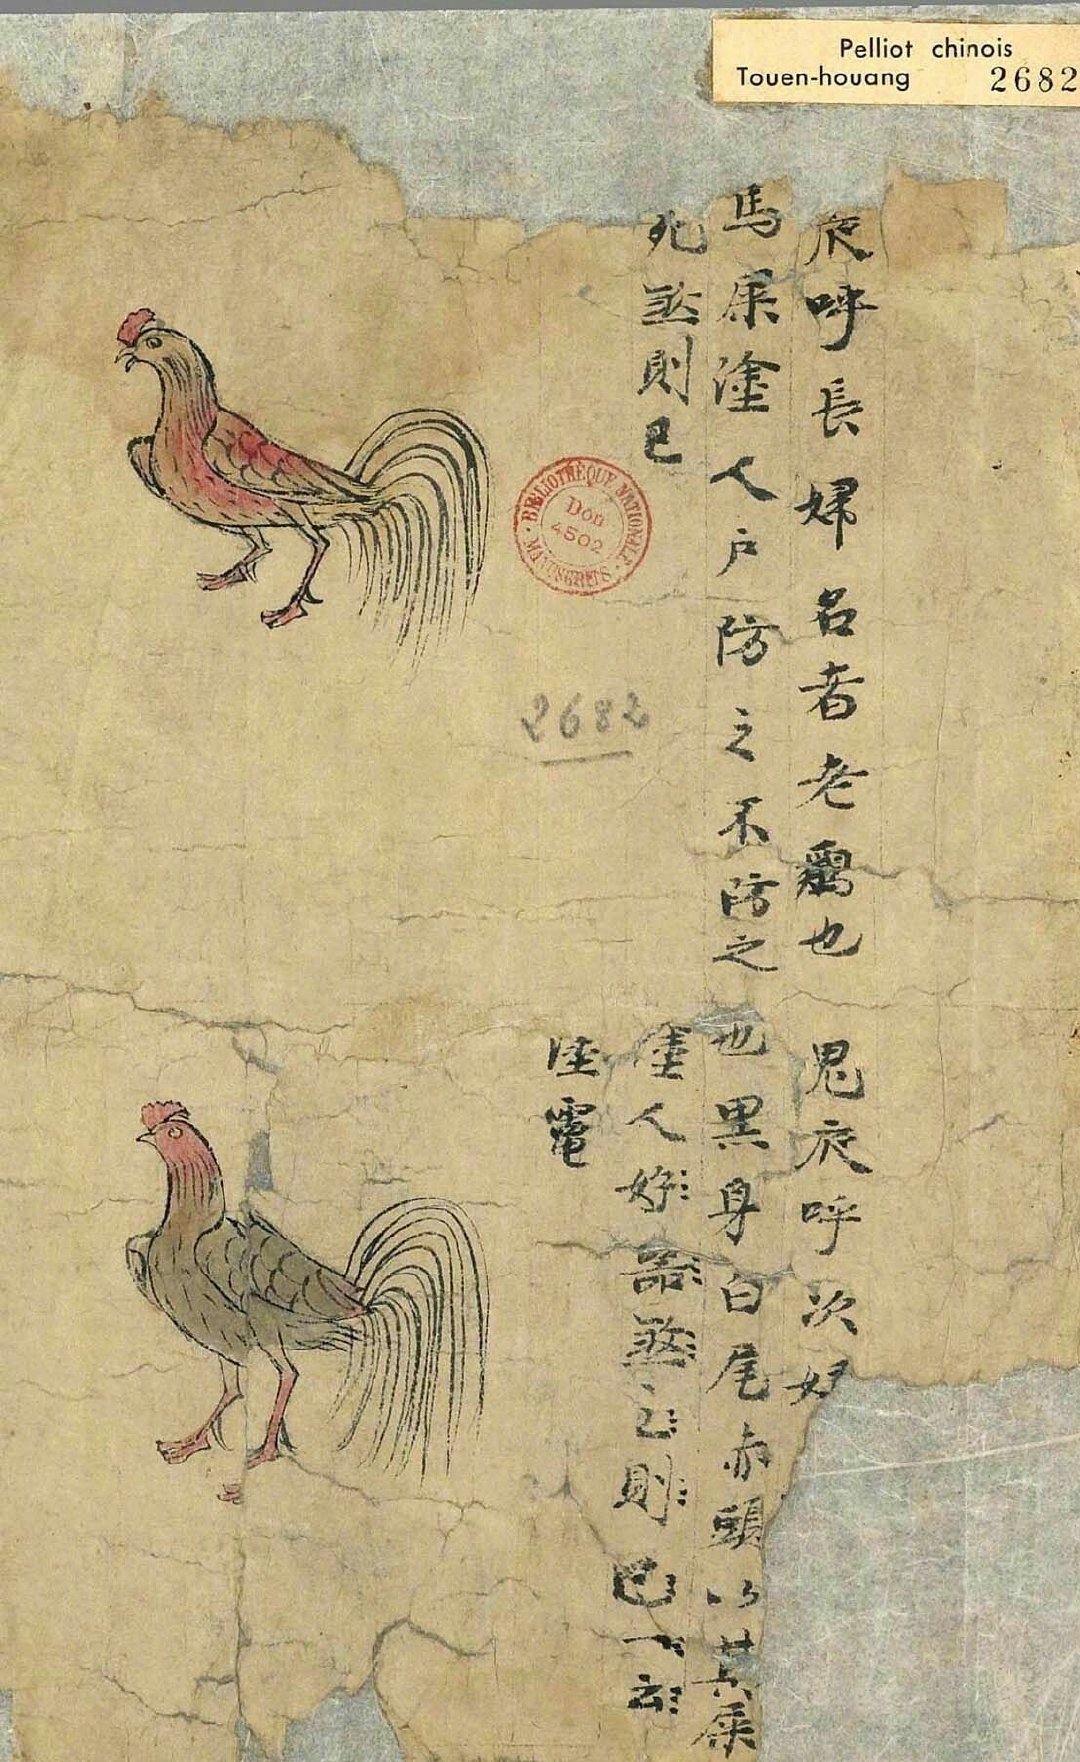 Pelliot chinois
Touen-houang 2682
夜呼長婦名者老鷄也
馬屎塗人户防之不防之
死煞則已
BIBLIOTHÈQUE NATIONALE
Don
4502
MANUSCRITS
2682
鬼夜呼次婦
也黑身白尾赤頭以其屎
塗人好器煞之則已一云
塗竈